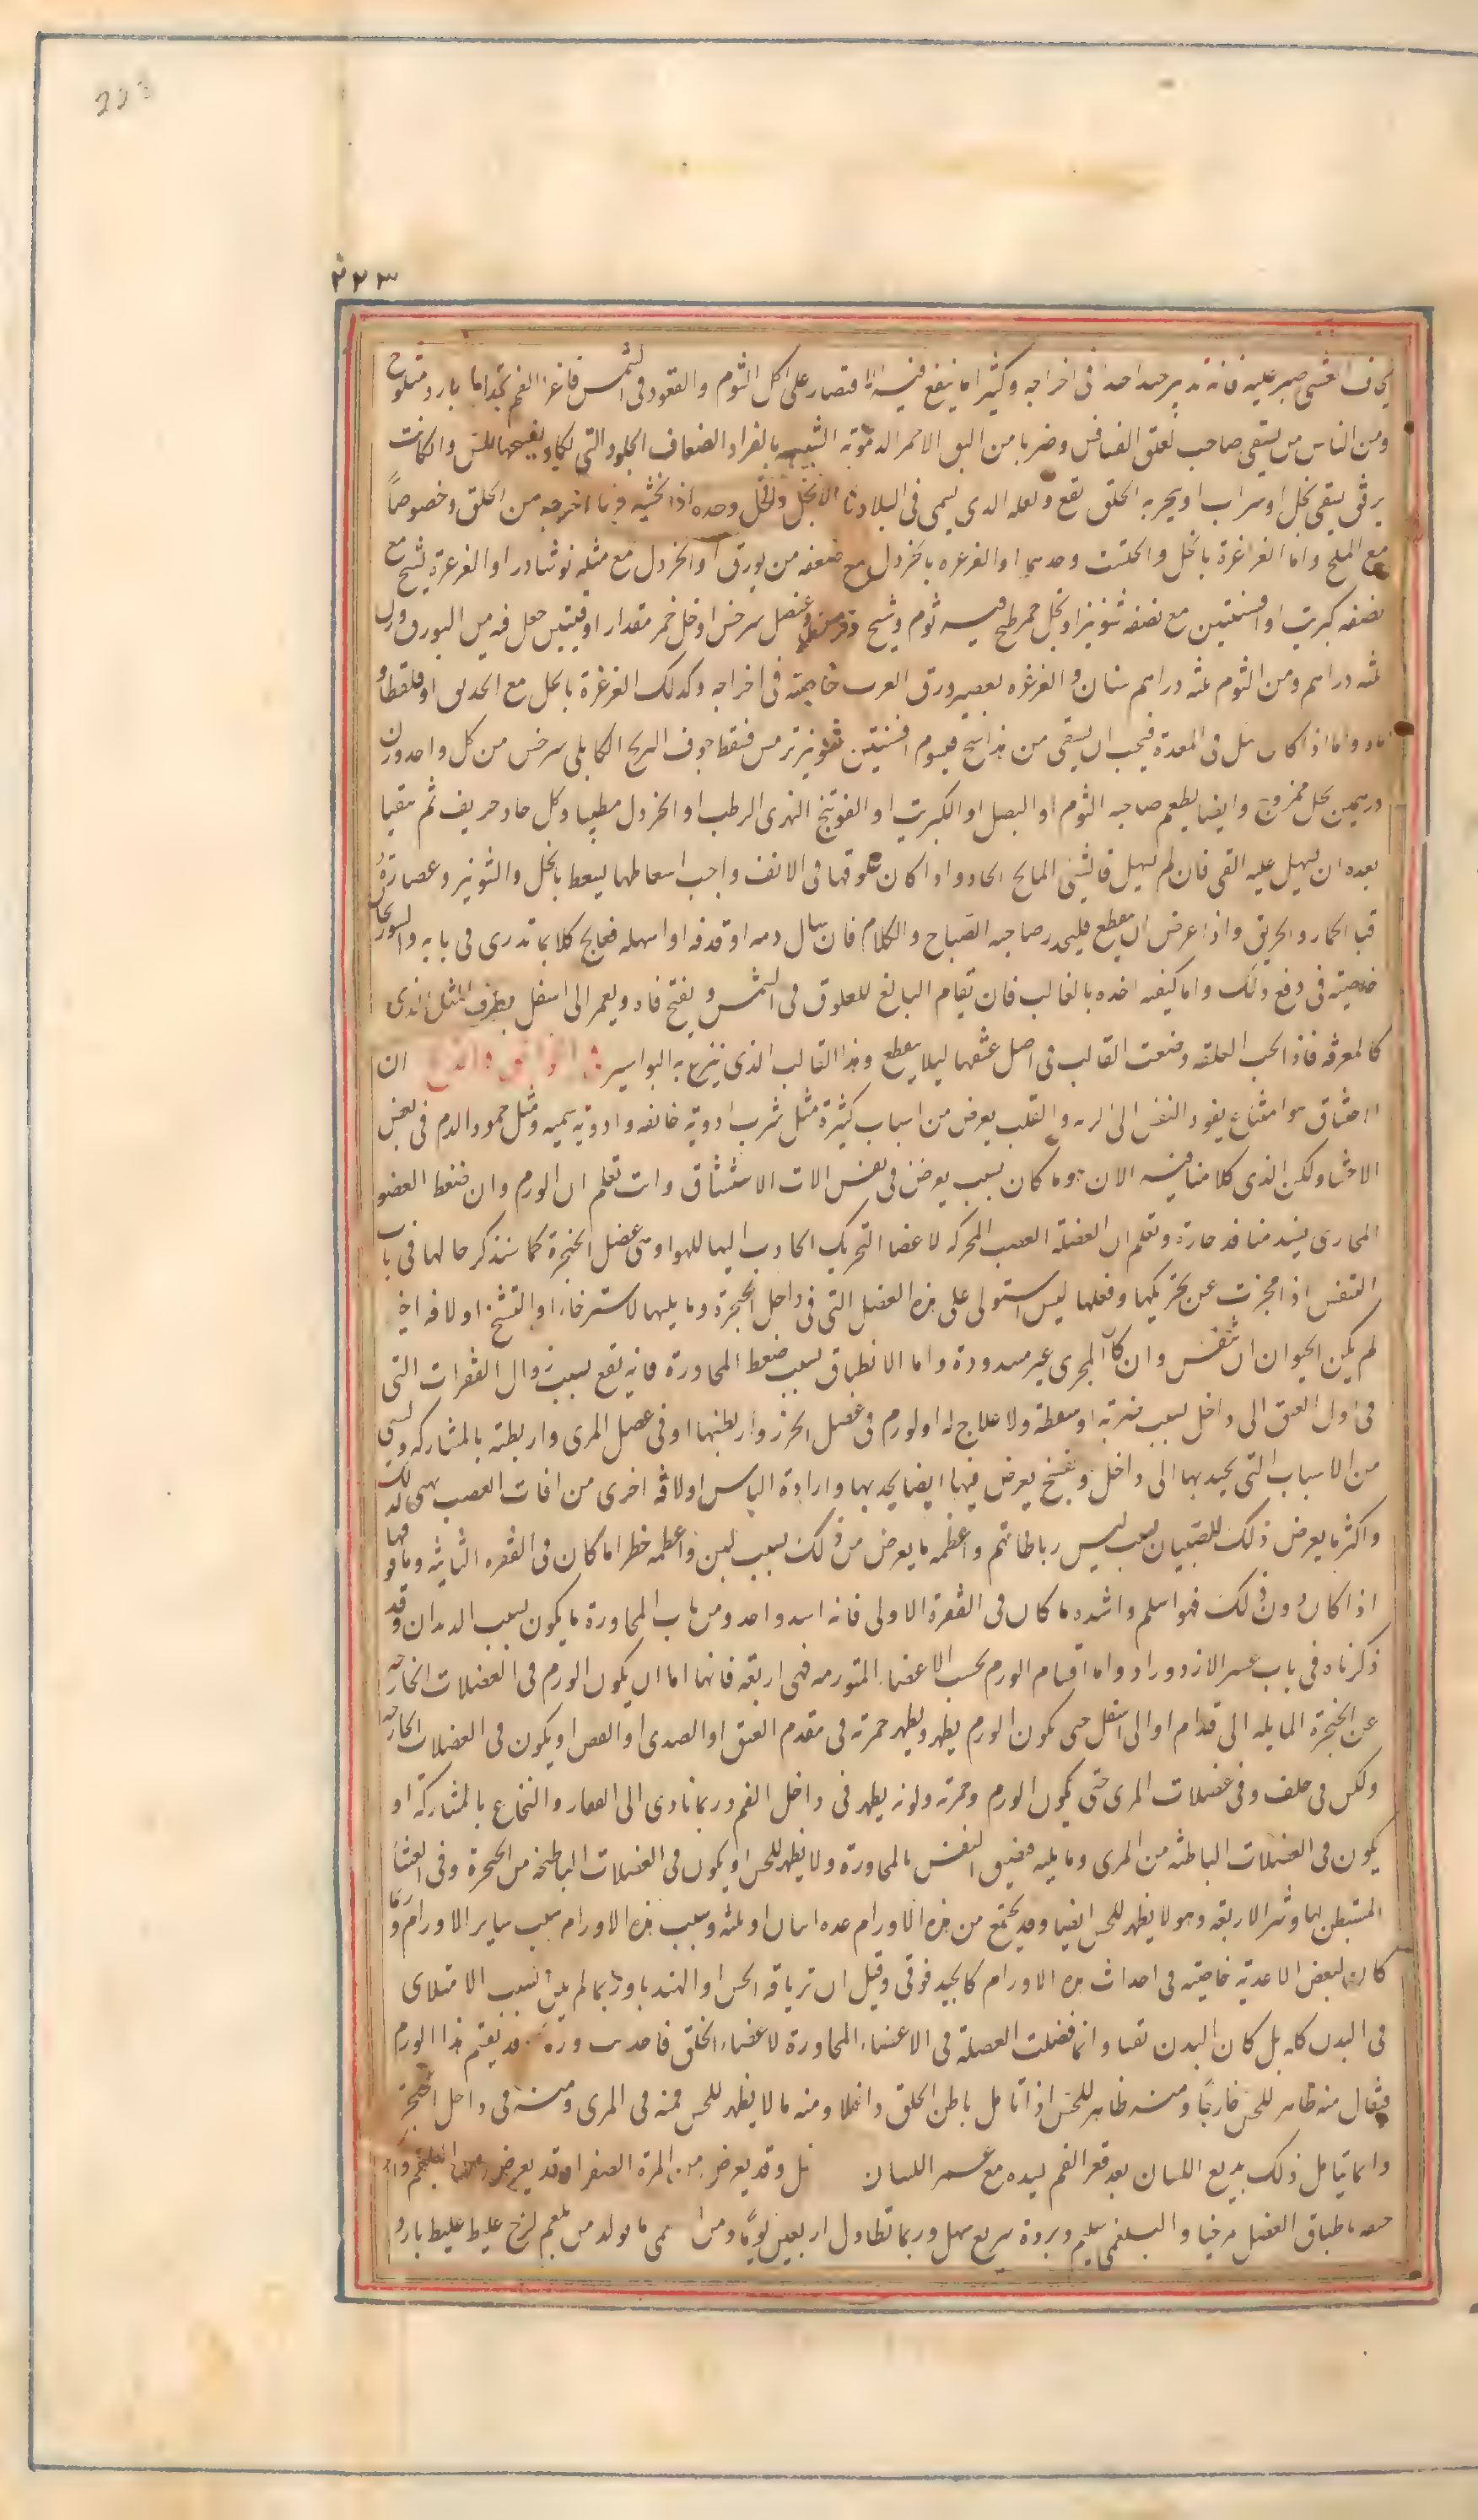 223
٢٢٣
يخاف الغشى صبر عليه فانه تدبير جيد احد فى اخراجه وكثيرا ما ينفع فيه الاقتصار على اكل الثوم والقعود فى الشمس فاغرا الفم بحذا ماء بارد مثلوج
ومن الناس من يسقى صاحب تعلق العلق الفسافس وضربا من البق الاحمر الدموية الشبيه بالقراد الضعاف الجلود التى يكاد يفسخها اللمس والكانت
برفق يسقى بخل او شراب او يبخر به الحلق بقع ولعله الذى يسمى فى البلادنا الانجل والخل وحده اذا تحسى فربما اخرجه من الحلق وخصوصاً
مع الملح واما الغراغرة بالخل والحلتيت وحدهما او الغرغره بالخردل مع ضعفه من بورق او الخردل مع مثله نوشادر او الغرغرة بشيح مع
نصفه كبريت او افسنتين مع نصفه شونيز او بخل خمر طبخ فيه ثوم وشيح وترمس وحنظل سرخس او خل خمر مقدار اوقيتين جعل فيه من البورق وزن
ثلثه دراهم ومن الثوم ثلثه دراهم سنان والغرغره بعصير ورق الغرب خاصيته فى اخراجه وكذلك الغرغرة بالخل مع الحديد او قلقطار
ماء واما اذا كان مثل فى المعدة فيجب ان يسقى من هذا شيح قيسوم افسنتين شونيز ترمس فنقط جوف البرنج الكابلى سرخس من كل واحد وزن
درهمين بخل ممزوج وايضا يطعم صاحبه الثوم او البصل او الكبريت او الفوتنج النهرى الرطب او الخردل مطيبا وكل حاد حريف ثم يتقيا
بعده ان سهل عليه القى فان لم يسهل فالشئ المالح الحاد واذا كان علوقها فى الانف واجب اسعاطها يسعط بالخل والشونيز وعصارة
قثا الحمار والخربق واذا عرض ان يقطع فليحذر صاحبه الصياح والكلام فان سال دمه او قذفه او اسهله فعالج كلا بما تدرى فى بابه والسورنجان
خاصيته فى دفع ذلك واما كيفيه اخذه بالقالب فان تقام البالع للعلوق فى الشمس ويفتح فاه ويغمز الى اسفل بطرف الميل الذى
كالمغرفه فاذا لحت العلقه وضعت القالب فى اصل عنقها ليلا ينقطع وهذا القالب الذى ينزع به البواسير فى الخوانيق والذبح ان
الاختناق هو امتناع نفوذ النفس الى الريه والقلب يعرض من اسباب كثيرة مثل شرب ادوية خانقه وادويه سميه ومثل جمود الدم فى بعض
الاحشا ولكن الذى كلامنا فيه الان هو ما كان بسبب يعرض فى نفس الات الاستنشاق وانت تعلم ان الورم وان ضغط العضو
المجارى يسد منافذ حارة وتعلم ان العضلة العصب المحركه لاعضا التحريك الحاذب اليها للهوا وهى عضل الحنجرة كما سنذكر حالها فى باب
التنفس اذا عجزت عن تحريكها وفعلها ليبس استولى على هذه العضل التى فى داخل الحنجرة وما يليها لاسترخاء او التشنج او لافه اخ
لم يكن الحيوان ان يتنفس وان كان المجرى غير مسدودة واما الانطباق بسبب ضغط المجاورة فانه يقع بسبب زوال الفقرات التى
فى اول العنق الى داخل بسبب ضربه او سقطة ولا علاج له او لورم فى عضل الخرز واربطتها او فى عضل المرى واربطته بالمشاركه ولشى
من الاسباب التى يجذبها الى داخل وتشنج يعرض فيها ايضا يجذبها وارادة الياس او لافه اخرى من افات العصب تهيى لذلك
واكثر ما يعرض ذلك للصبيان بسبب ليس رباطاتهم واعظمه ما يعرض من ذلك بسبب لين واعظمه خطرا ما كان فى الفقره الثانيه وما فوقها
اذا كان دون ذلك فهو اسلم واشده ما كان فى الفقرة الاولى فانه اسد واحد ومن باب المجاورة ما يكون بسبب الديدان وقد
ذكرناه فى باب عسر الازدراد واما اقسام الورم بحسب الاعضا المتورمه فهى اربعه فانها اما ان يكون الورم فى العضلات الخارجه
عن الحنجرة المايله الى قدام او الى اسفل حتى يكون الورم يظهر ويظهر حمرته فى مقدم العنق او الصدر او القص او يكون فى العضلات الخارجه
ولكن فى خلف وفى عضلات المرى حتى يكون الورم وحمرته ولونه يظهر فى داخل الفم وربما تادى الى الفقار والنخاع بالمشاركة او
يكون فى العضلات الباطنه من المرى وما يليه فيضيق النفس بالمجاورة ولا يظهر للحس او يكون فى العضلات الباطنه من الحنجرة وفى الغشا
المستبطن لها وشر الاربعه وهو لا يظهر للحس ايضا وقد يجتمع من هذه الاورام عده اثنان او ثلثه وسبب هذه الاورام سبب ساير الاورام وربما
كان لبعض الاغذيه خاصيه فى احداث هذه الاورام كالجيدفوقى وقيل ان ترياقه الخس او الهندبا وربما لم يكن السبب الامتلاى
فى البدن كله بل كان البدن نقيا وانما فضلت العضله فى الاعضاء المجاورة لاعضاء الحلق فاحدثت ورما قد يقسم هذا الورم
فيقال منه ظاهر للحس خارجا ومنه ظاهر للحس اذا تامل باطن الحلق داخلا ومنه ما لا يظهر للحس فمنه فى المرى ومنه فى داخل الحنجرة
وانما يتامل ذلك بدلع اللسان بعد فغر الفم ليده مع غمز اللسان وقد يعرض من المرة الصفرا وقد يعرض من البلغم
باطباق العضل مرخيا والبلغمى سليم وبرودة سريع سهل وربما تطاول اربعين يوما ومن ما تولد من بلغم لزج غليظ غليظ بارد